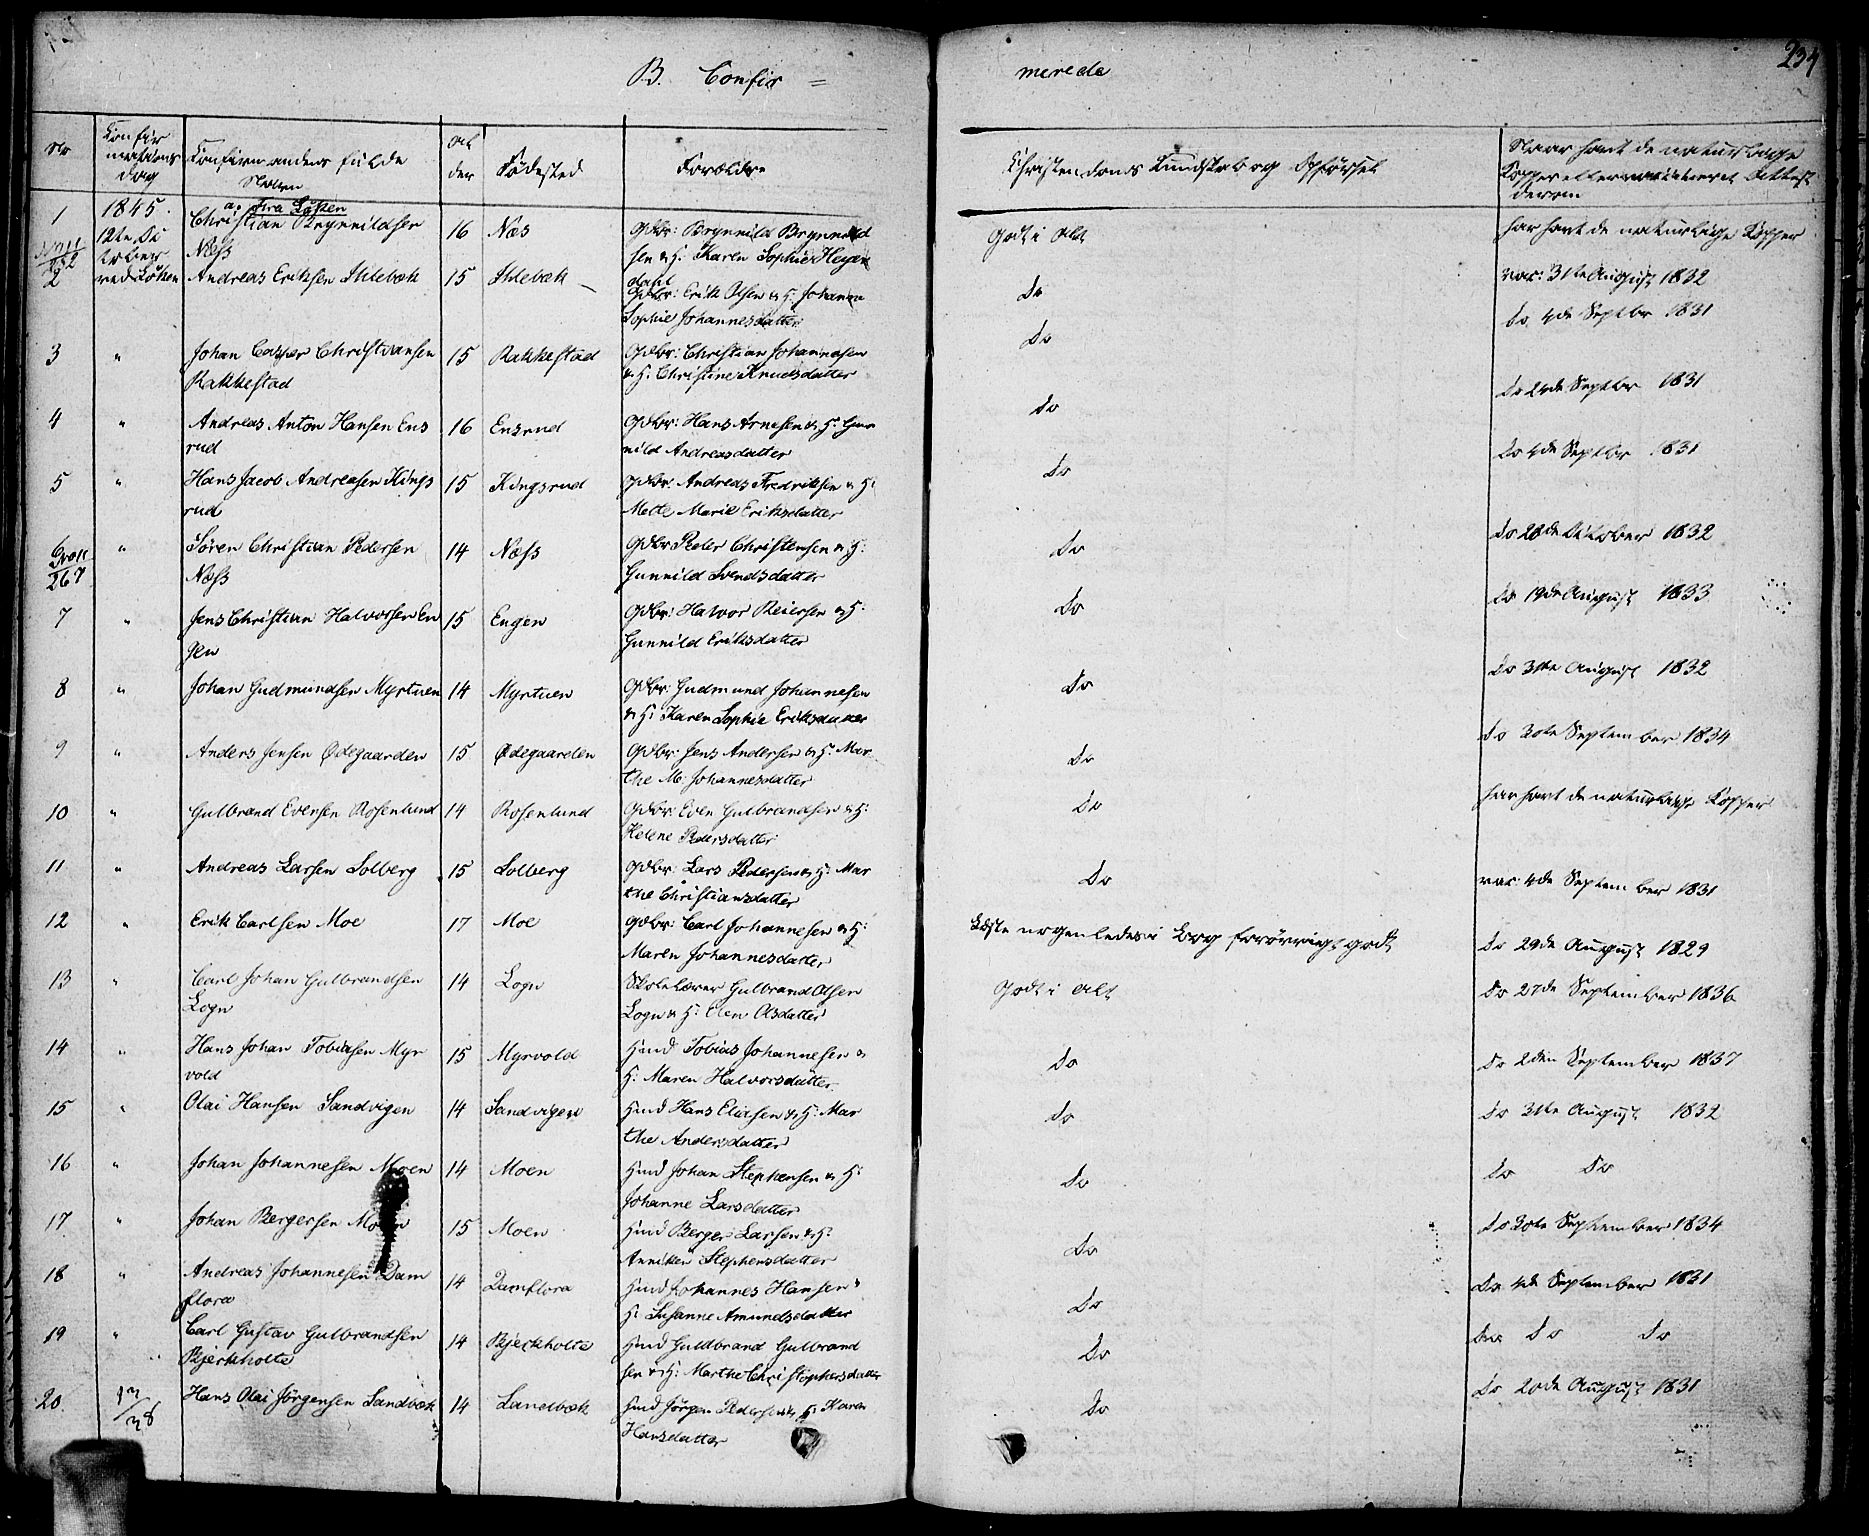 B. Confir =
merede
234
No
Confir
mations
dag
Confirmandens fulde
Navn
Al
der
Fødested
Forældre
Christendoms Kundskab og Opførsel
Naar havt de naturlige
Kopper eller vaccineret Attest
derom
1845.
a. fra Løken
1
12te Oc
tober
ved Løken
Christian Brynnildsen
Næss
16
Næs
Gdbr: Brynnild Brynnild
sen & H: Karen Sophie Heyer
dahl
Godt i Alt
har havt de naturlige Kopper
2
Andreas Eriksen Ihlebæk
15
Ihlebæk
Gdbr: Erik Olsen & H: Johanne
Sophie Johannesdatter
Do
vac: 31te August 1832
3
"
Johan Casper Christiansen
Rakkestad
15
Rakkestad
Gdbr: Christian Johannesen
& H: Christine Knudsdatter
Do
Do 4de Septbr 1831
4
"
Andreas Anton Hansen Ens
rud
16
Ensrud
Gdbr: Hans Arnesen & H: Gun
nild Andreasdatter
Do
Do 24de Septbr 1831
5
"
Hans Jacob Andreasen Kings
rud
15
Kingsrud
Gdbr: Andreas Fredriksen & H:
Mette Marie Eriksdatter
Do
Do 4de Septbr 1831
6
267
"
Sören Christian Pedersen
Næss
14
Næss
Gdbr Peder Christensen & H:
Gunnild Svendsdatter
Do
Do 28de October 1832
7
"
Jens Christian Halvorsen En
gen
15
Engen
Gdbr: Halvor Reiersen & H:
Gunnild Eriksdatter
Do
Do 19de August 1833
8
"
Johan Gudmundsen Myrtuen
14
Myrtuen
Gdbr: Gudmund Johannesen
& H: Karen Sophie Eriksdatter
Do
Do 31te August 1832
9
"
Anders Jensen Ødegaarden
15
Ødegaarden
Gdbr: Jens Andersen & H: Mar
the M: Johannesdatter
Do
Do 30te September 1834
10
"
Gulbrand Evensen Rosenlund
14
Rosenlund
Gdbr: Even Gulbrandsen & H:
Helene Pedersdatter
Do
har havt de naturlige Kopper
11
"
Andreas Larsen Solberg
15
Solberg
Gdbr: Lars Pedersen & H: Mar
the Christiansdatter
Do
vac: 4de September 1831
12
"
Erik Carlsen Moe
17
Moe
Gdbr: Carl Johannesen & H:
Maren Johannesdatter
Læste nogenledes i Bog forøvrigt godt
Do 29de August 1829
13
"
Carl Johan Gulbrandsen
Logn
14
Logn
Skolelærer Gulbrand Olsen
Logn & H: Elen Olsdatter
Godt i Alt
Do 27de September 1836
14
"
Hans Johan Tobiasen Myr
vold
15
Myrvold
Hmd Tobias Johannesen &
H: Maren Halvorsdatter
Do
Do 2den September 1837
15
"
Olai Hansen Sandvigen
14
Sandvigen
Hmd Hans Eliasen & H: Mar
the Andersdatter
Do
Do 31te August 1832
16
"
Johan Johannesen Moen
14
Moen
Hmd Johan Stephensen & H:
Johanne Larsdatter
Do
Do Do
17
"
Johan Bergersen Moen
15
Moen
Hmd Berger Larsen & H:
Anniken Stephensdatter
Do
Do 30te September 1834
18
"
Andreas Johannesen Dam
flora
14
Damflora
Hmd Johannes Hansen &
H: Susanne Amundsdatter
Do
Do 4de September 1831
19
"
Carl Gustav Gulbrandsen
Bjerkholte
14
Bjerkholte
Hmd Guldbrand Gulbrand
sen & H: Marthe Christophersdatter
Do
Do Do Do
20.
Hans Olai Jörgensen Sandbæk
14
Sandbæk
Hmd Jörgen Pedersen & H: Karen
Hansdatter
Do
Do 20de August 1831